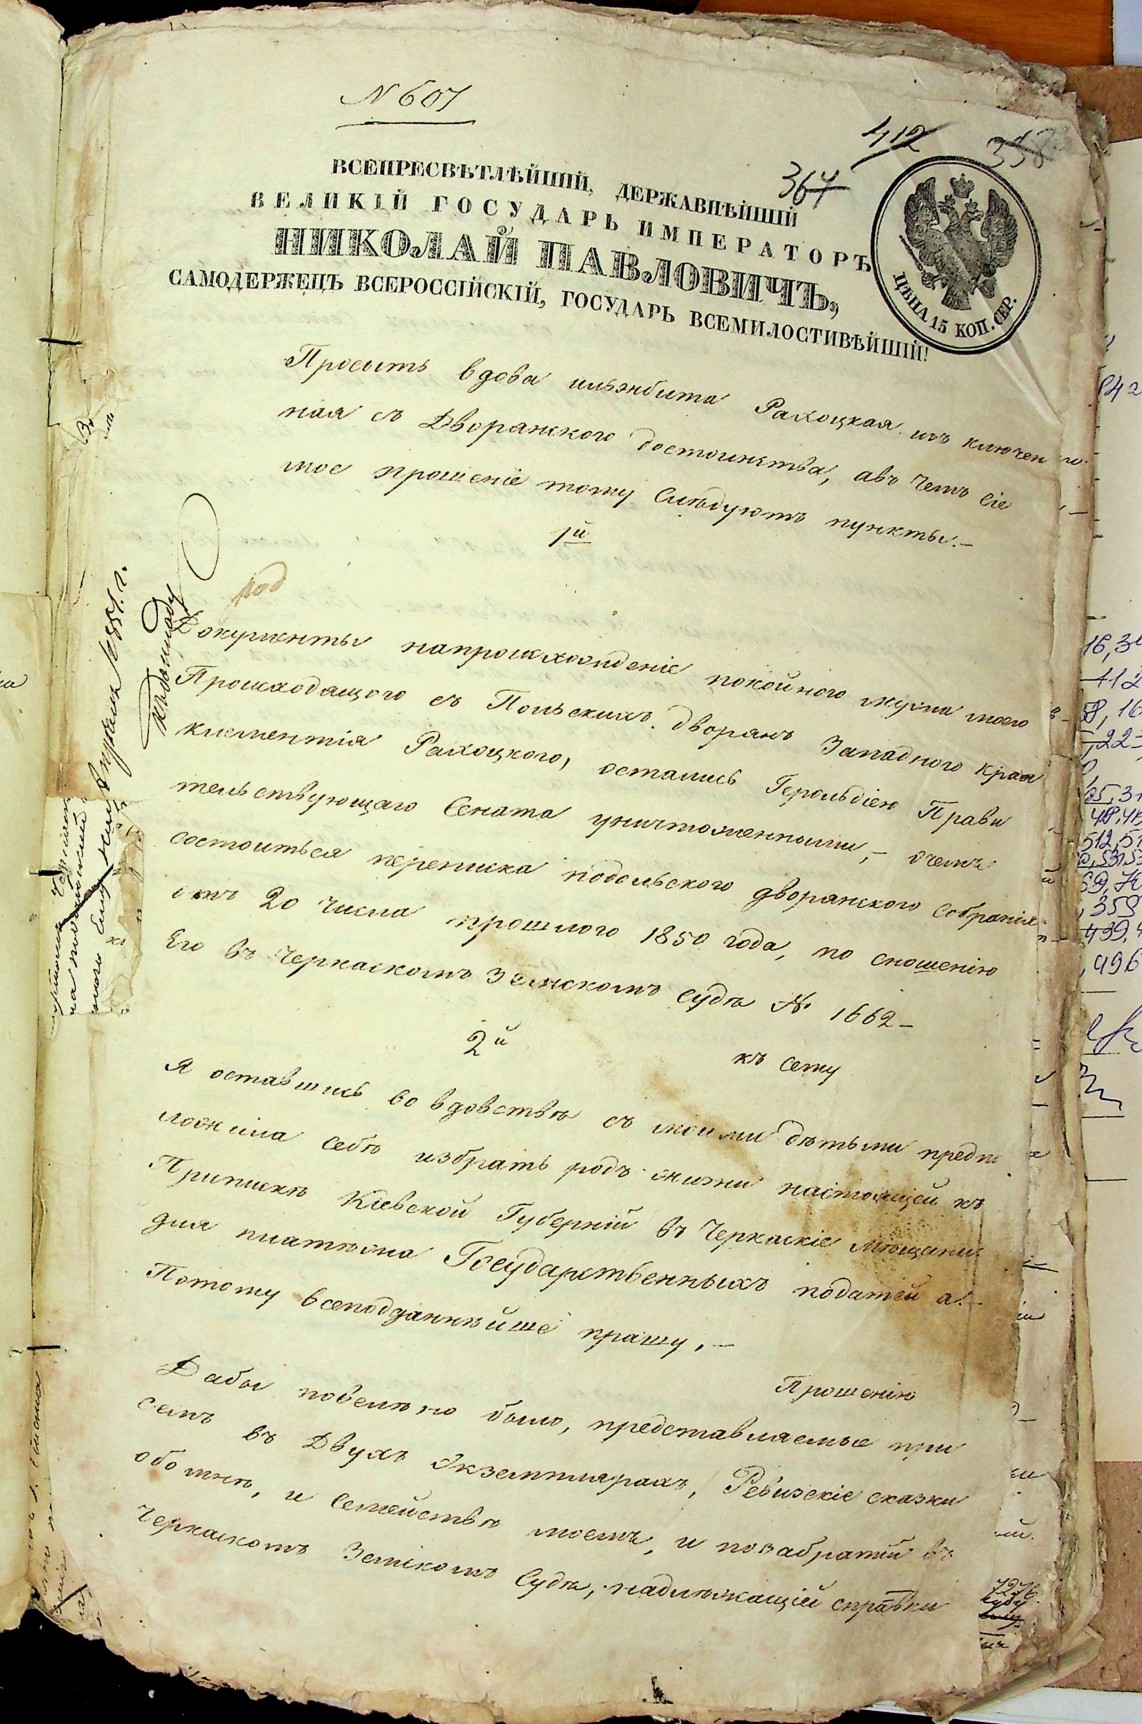 N 607
412
358
367
ВСЕПРЕСВѢТЛѢЙШІЙ, ДЕРЖАВНѢЙШІЙ
ВЕЛИКІЙ ГОСУДАРЬ ИМПЕРАТОРЪ
НИКОЛАЙ ПАВЛОВИЧЪ,
САМОДЕРЖЕЦЪ ВСЕРОССІЙСКІЙ, ГОСУДАРЬ ВСЕМИЛОСТИВѢЙШІЙ!
ЦѢНА 15 КОП. СЕР.
Просытъ вдова ильзбита Рахоцкая изъ ключен
ная съ Дворанского достоинства, авъ чемъ сіе
мое прошеніе тому Слѣдуютъ пункты.—
1й
род
Документы напроисхожденіе покойного мужа моего
Происходящого съ Польскихъ дворянъ Западного края
климентія Рахоцкого, остались Герольдіею Прави
тельствующаго Сената уничтоженными,— очемъ
состоиться переписка подольского дворянского собранія
отъ 20 числа прошлого 1850 года, по сношенію
Его въ Черкаскомъ Земскомъ Судѣ № 1662—
2й
къ сему
Я оставшись во вдовствѣ съ моими дѣтьми предпо
ложила себѣ избрать родъ жизни настоящей къ
Припискѣ Кіевской Губерній въ Черкаскіе Мѣщани
для платѣжа Государственныхъ податей а.—
Потому всеподданнѣйше прашу,—
Прошенію
Дабы повелѣно было, представляемые при
семъ въ Двухъ Экземплярахъ, Ревизскіе сказки
обо мнѣ, и Семействѣ моемъ, и позабратій въ
Черкаскомъ Земскомъ Судѣ, надлѣжащій справки
Апреля 1851 г.
7276